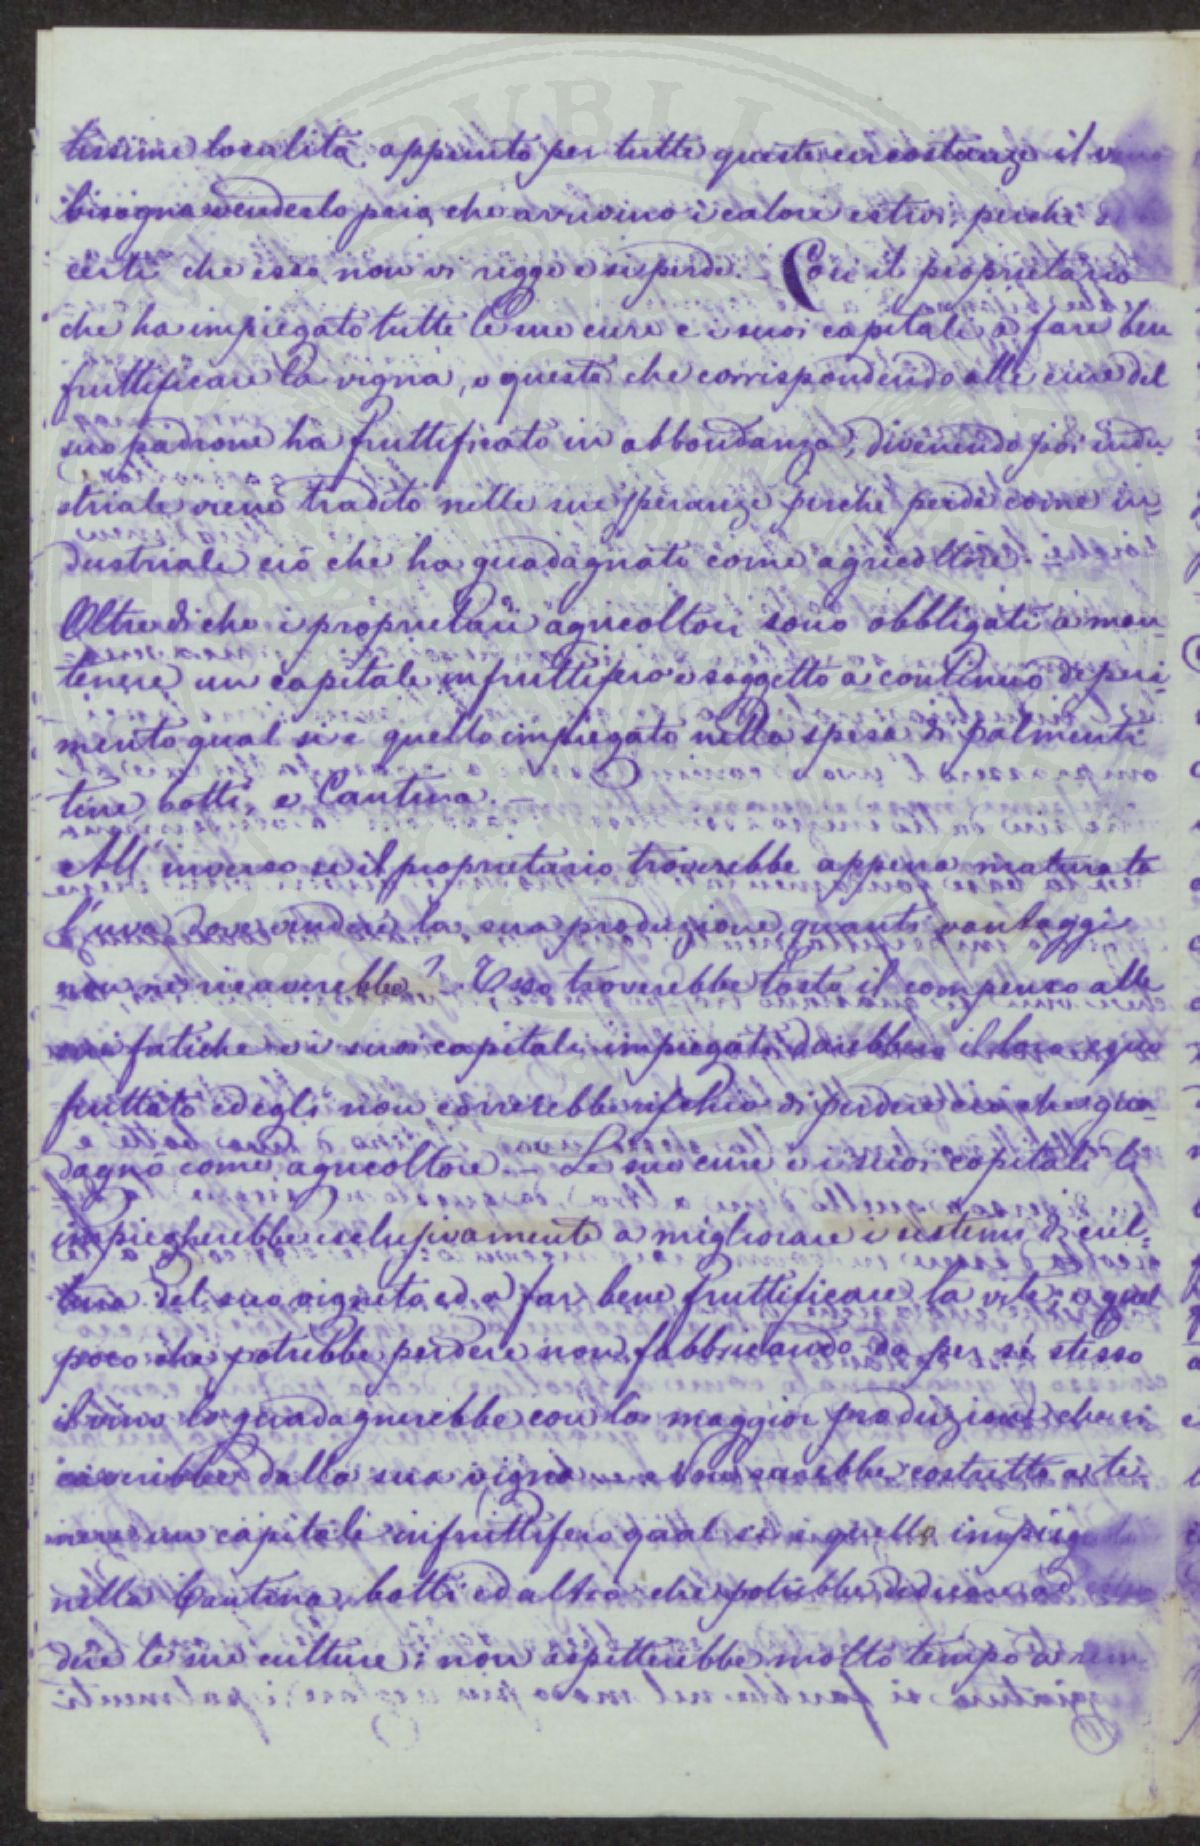 tissime località appunto per tutte queste circostanze il vino
bisogna venderlo pria che arrivino i calori estivi, perchè si
certi che esso non vi regge e si perde. – Così il proprietario
che ha impiegato tutte le sue cure e i suoi capitali a fare ben
fruttificare la vigna, e questa che corrispondendo alle cure del
suo padrone ha fruttificato in abbondanza, divenendo poi indu-
striale viene tradito nelle sue speranze perchè perde come in-
dustriale ciò che ha guadagnato come agricoltore. –
Oltre di che i proprietarii agricoltori sono obbligati a man-
tenere un capitale infruttifero e soggetto a continuo deperi-
mento qual si è quello impiegato nella spesa di palmenti
tine, botti, e Cantina. –
All'inverso se il proprietario troverebbe appena maturata
l'uva ove vendere la sua produzione quanti vantaggi
non ne ricaverebbe? Esso troverebbe tosto il compenso alle
sue fatiche e i suoi capitali impiegati darebbero il loro equo
fruttato ed egli non correrebbe rischio di perdere ciò che gua-
dagnò come agricoltore. – Le sue cure e i suoi capitali li
impiegherebbe esclusivamente a migliorare i sistemi di cul-
tura del suo vigneto ed a far bene fruttificare la vite; e quel
poco che potrebbe perdere non fabbricando da per sè stesso
il vino lo guadagnerebbe con la maggior produzione che ri
caverebbe dalla sua vigna e non sarebbe costretto a te-
nere un capitale infruttifero qual si è quello impiegato
nella Cantina, botti ed altro che potrebbe dedicare ad
dere le sue culture; non aspetterebbe molto tempo a